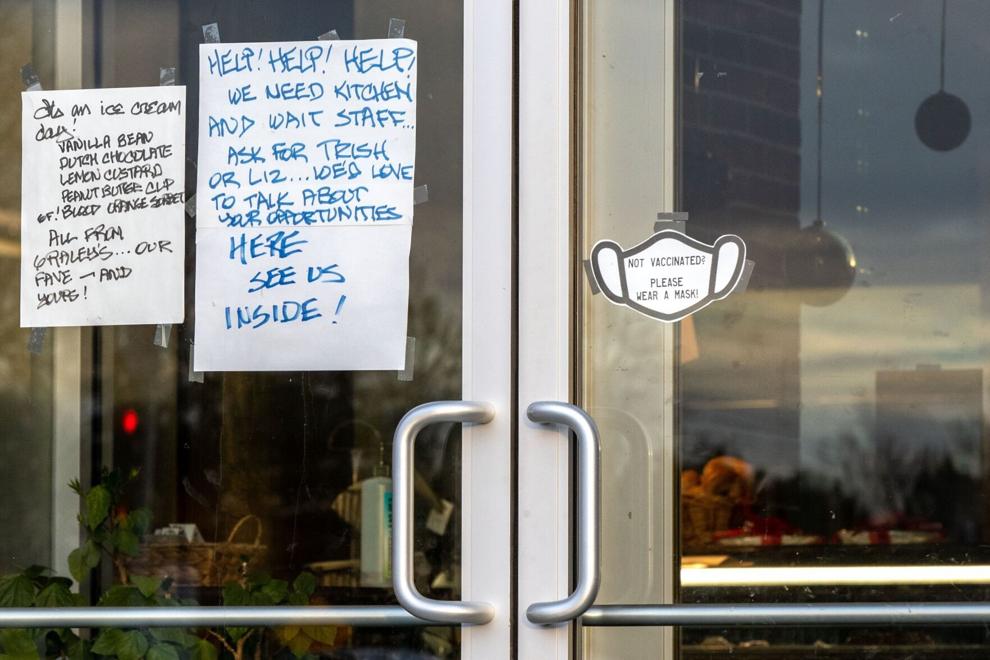 Its an ice cream
day!
VANILLA BEAN
DUTCH CHOCOLATE
LEMON CUSTARD
PEANUT BUTTER CUP
GF! BLOOD ORANGE SORBET
ALL FROM
GRALEY'S... OUR
FAVE - AND
YOURS!
HELP! HELP! HELP!
WE NEED KITCHEN
AND WAIT STAFF...
ASK FOR TRISH
OR LIZ... WE'D LOVE
TO TALK ABOUT
YOUR OPPORTUNITIES
HERE
SEE US
INSIDE!
NOT VACCINATED?
PLEASE
WEAR A MASK!